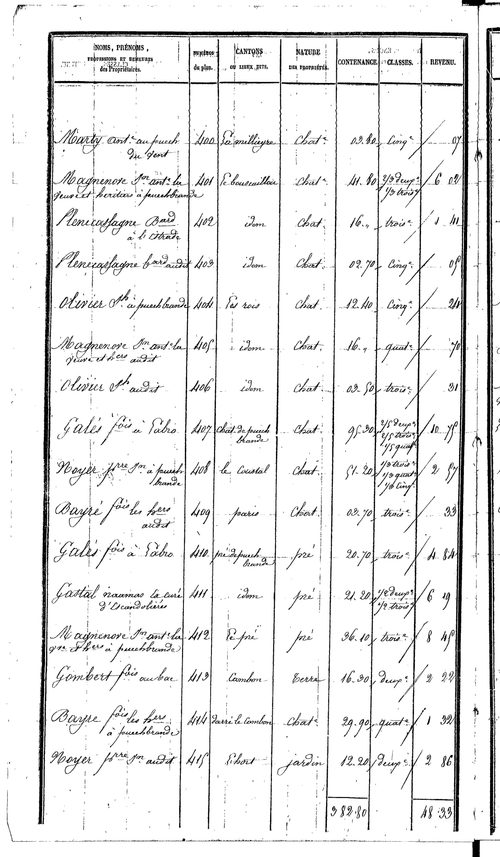 NOMS, PRÉNOMS,
PROFESSIONS ET DEMEURES
des Propriétaires.
NUMÉROS
du plan.
CANTONS
OU LIEUX DITS.
NATURE
DES PROPRIÉTÉS.
CONTENANCE.
CLASSES.
REVENU.
Marty ant.e au puech 400 chat.e 03.80 Cinq.e 07
du vent
Magnenore Jn ant.e la 401 chat.e 41.80 2/3 deux.e 6 02
veuve et héritiers à puechbrande 1/3 trois.e
Plénécassagne Bard 402 idem chat. 16 " trois.e 1 41
à l'Estrade
Plénécassagne bard audit 403 idem chat. 02.70 Cinq.e 05
Olivier Jh à puechbrande 404 Les rois chat. 12.40 Cinq.e 24
Magnenore Jn ant.e la 405 idem chat. 16 " quat.e 70
veuve et hers audit
Olivier Jh audit 406 idem chat. 03.50 trois.e 31
Galés fois à Labro 407 chat. de puech chat. 95.30 2/5 deux.e 10 75
brande 2/5 trois.e
1/5 quat.e
Noyer pre Jn à puech 408 le coustal chat. 51.20 1/3 trois.e 2 57
brande 1/3 quat.e
1/3 Cinq.e
Bayré fois les hers 409 paris chat. 03.70 trois.e 33
audit
Galés fois à Labro 410 pré de puech pré 20.70 trois.e 4 84
brande
Gastal naamas la curé 411 idem pré 21.20 1/2 deux.e 6 19
d'Escandolières 1/2 trois.e
Magnenore Jn ant.e la 412 Le pré pré 36.10 trois.e 8 45
vve & hers à puechbrande
Gombert fois au bac 413 Cambon Terre 16.30 deux.e 2 22
Bayre fois les hers 414 darré le cambon chat.e 29.90 quat.e 1 32
à puechbrande
Noyer pre Jn audit 415 L'hort jardin 12.20 deux.e 2 86
382.80 48.33